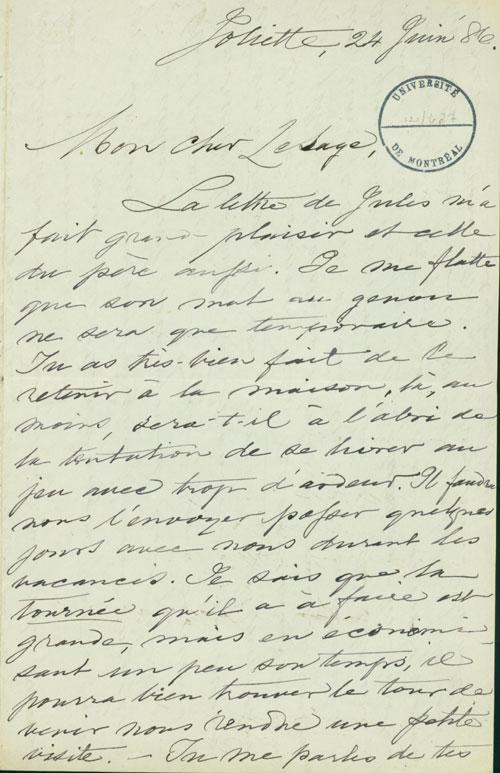 Joliette, 24 Juin 86.
UNIVERSITÉ
DE MONTRÉAL
Mon cher Lesage,
La lettre de Jules m'a
fait grand plaisir et celle
du père aussi. Je me flatte
que son mal au genou
ne sera que temporaire.
Tu as très-bien fait de le
retenir à la maison, là, au
moins, sera-t-il à l'abri de
la tentation de se livrer au
jeu avec trop d'ardeur. Il faudra
nous l'envoyer passer quelques
jours avec nous durant les
vacances. Je sais que la
tournée qu'il a à faire est
grande, mais en économi-
sant un peu son temps, il
pourra bien trouver le tour de
venir nous rendre une petite
visite. — Tu me parles de tes